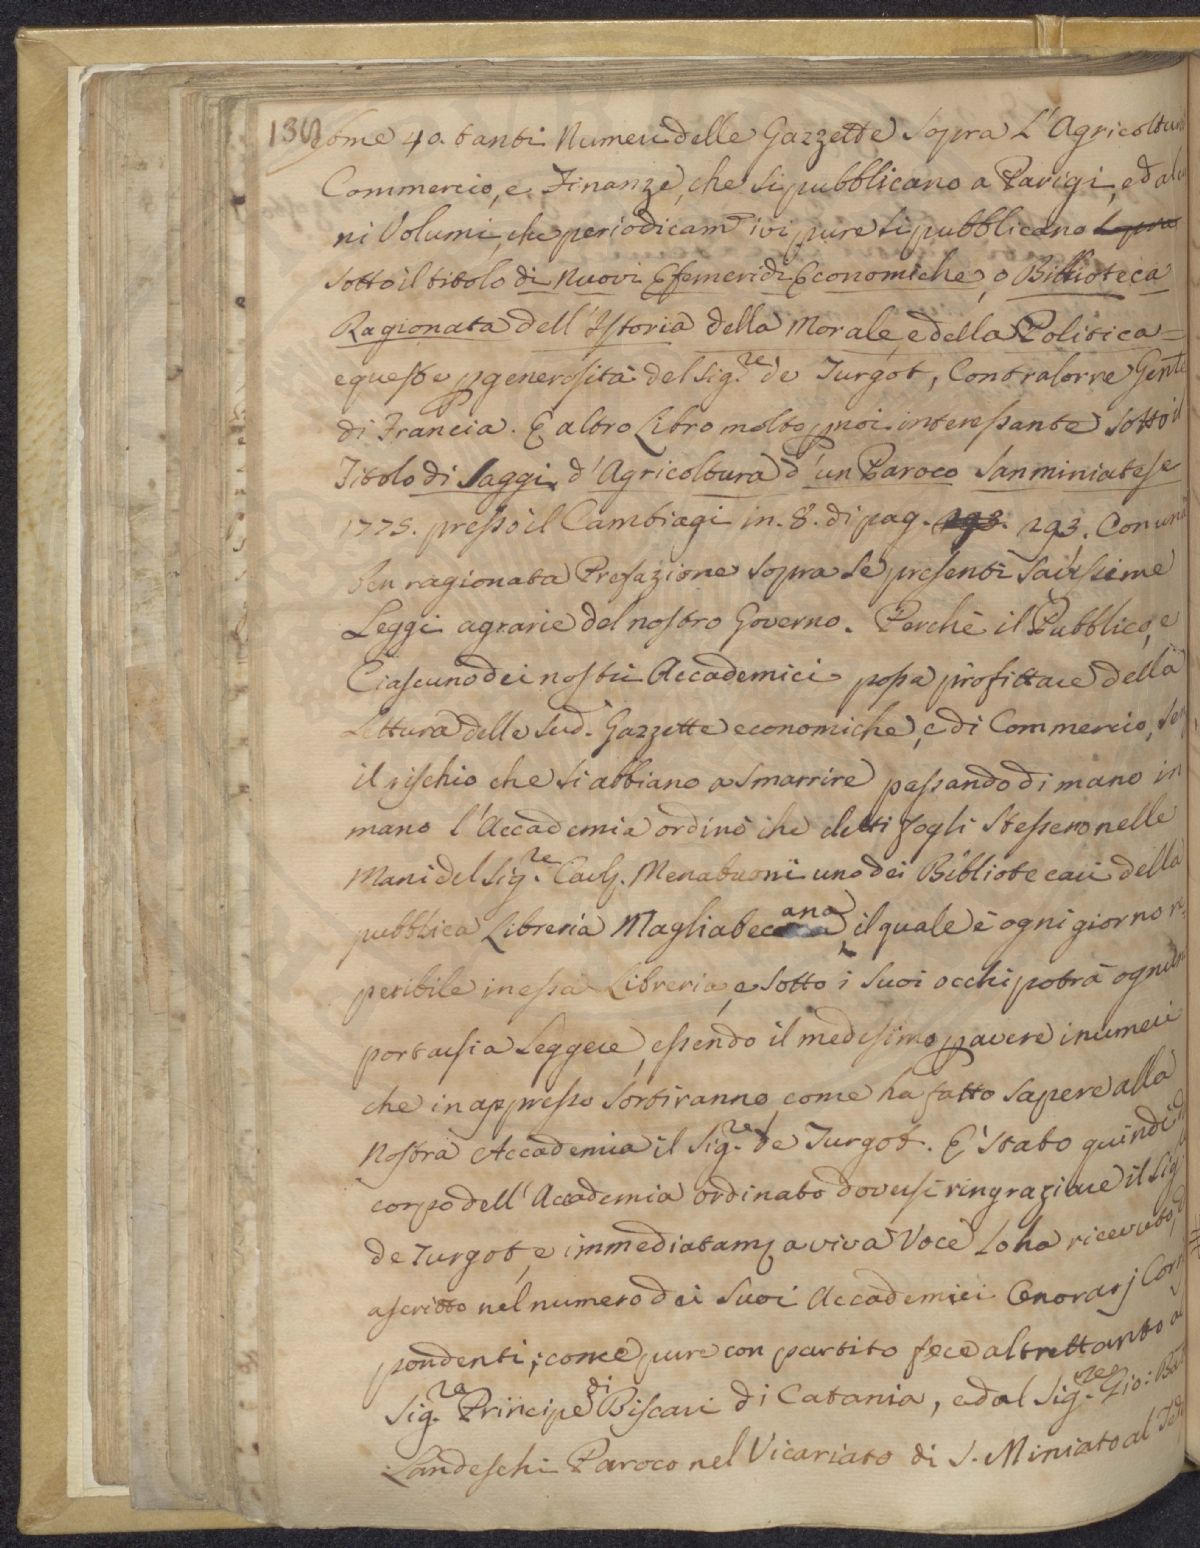 136
come 40. tanti Numeri delle Gazzette sopra L'Agricoltur
Commercio, e Finanze, che si pubblicano a Parigi, ed alcu
ni Volumi, che periodicam.e ivi pure si pubblicano
sotto il titolo di Nuovi Efemeridi Economiche, o Biblioteca
Ragionata dell'Istoria della Morale, e della Politica=
e queste p generosità del Sig.re de Turgot, Contralorre Gen.le
di Francia. E altro Libro molto p noi interessante sotto il
Titolo di Saggi d'Agricoltura d'un Paroco Sanminiatese
1775. presso il Cambiagi in. 8. di pag. 293. 293. Con una
ben ragionata Prefazione sopra le presenti savissime
Leggi agrarie del nostro Governo. Perchè il Pubblico, e
Ciascuno dei nostri Accademici possa profittare della
Lettura delle Sud.e Gazzette economiche, e di Commercio, sen
il rischio che si abbiano a smarrire passando di mano in
mano l'Accademia ordinò che detti Fogli stessero nelle
Mani del Sig.re Cav. Menabuoni uno dei Bibliotecari della
pubblica Libreria Magliabecana, il quale è ogni giorno re
peribile in essa Libreria, e sotto i suoi occhi potrà ognuno
portarsi a Leggere, essendo il medesimo p avere i numeri
che in appresso sortiranno, come ha fatto sapere alla
Nostra Accademia il Sig.re de Turgot. E' stato quindi
corpo dell'Accademia ordinato doversi ringraziare il Sig.
de Turgot, e immediatam. a viva Voce Lo ha ricevuto,
ascritto nel numero dei suoi Accademici Onorarj Corri
pondenti; come pure con partito fece altrettanto al
Sig.re Principe di Biscari di Catania, ed al Sig.re Gio: Bat
Landeschi Paroco nel Vicariato di S. Miniato al Ted